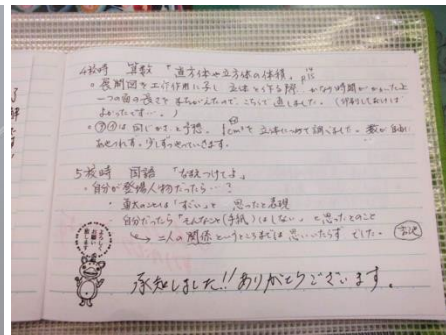 4校時 算数 「直方体や立方体の体積」 p15
・展開図を工作用紙に写し 立体を作る際 かなり時間がかかった上
一つの面の長さをまちがえたので、こちらで直しました。(印刷しておけば
よかったです…。)
は同じかさと予想。1cm³を立体につめて調べました。
5校時 国語 「なまえつけてよ」
・自分が登場人物だったら…?
・重大のことは「すごい」と 思ったと表現
自分だったら「そんなこと(手紙)はしない」と思ったとのこと
→ 二人の関係というところまでは 思いいたらず でした。
よろしくお願い致します
承知しました!!ありがとうございます。